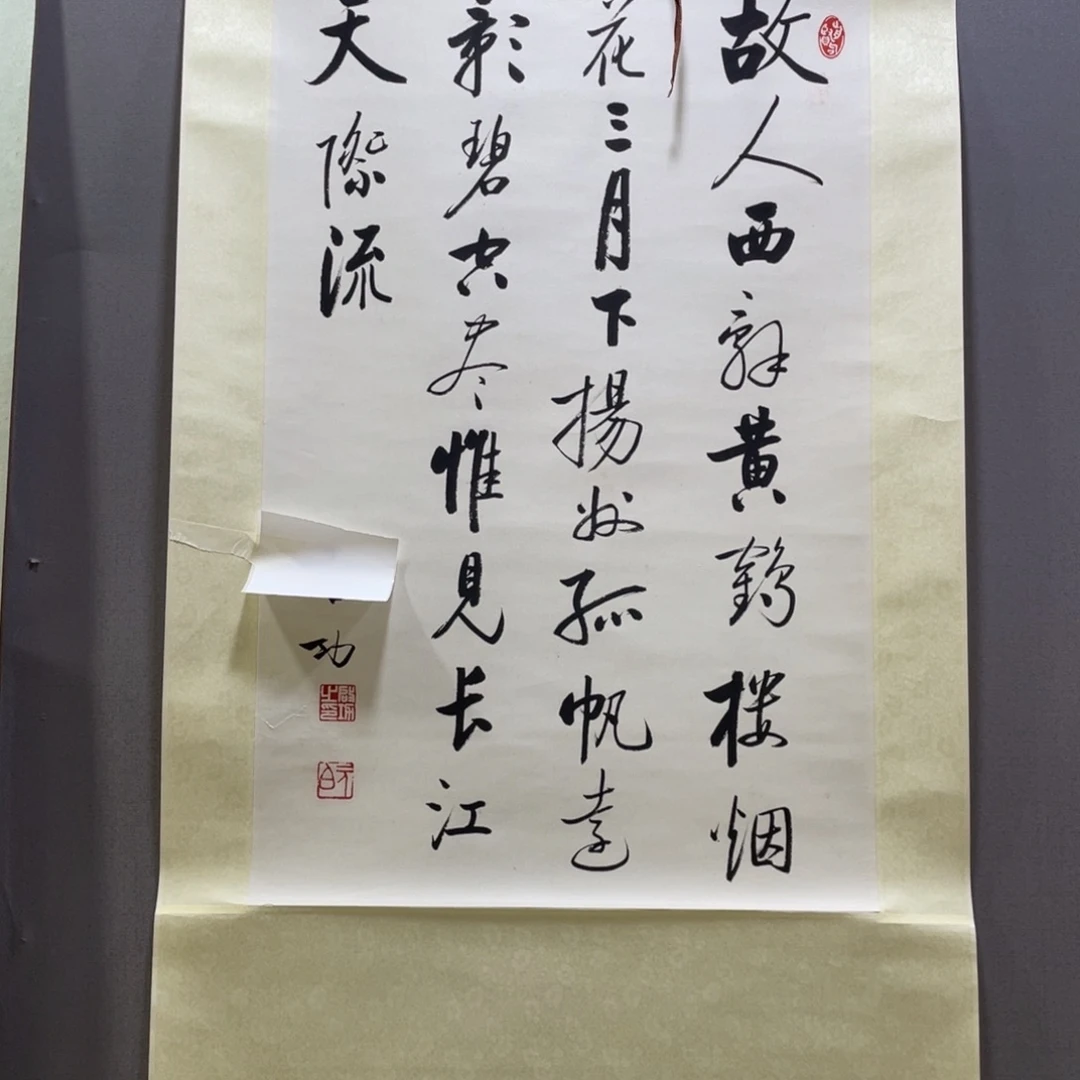 故人西辭黄鹤楼烟
花三月下揚州孤帆遠
影碧空尽惟見长江
天際流
功